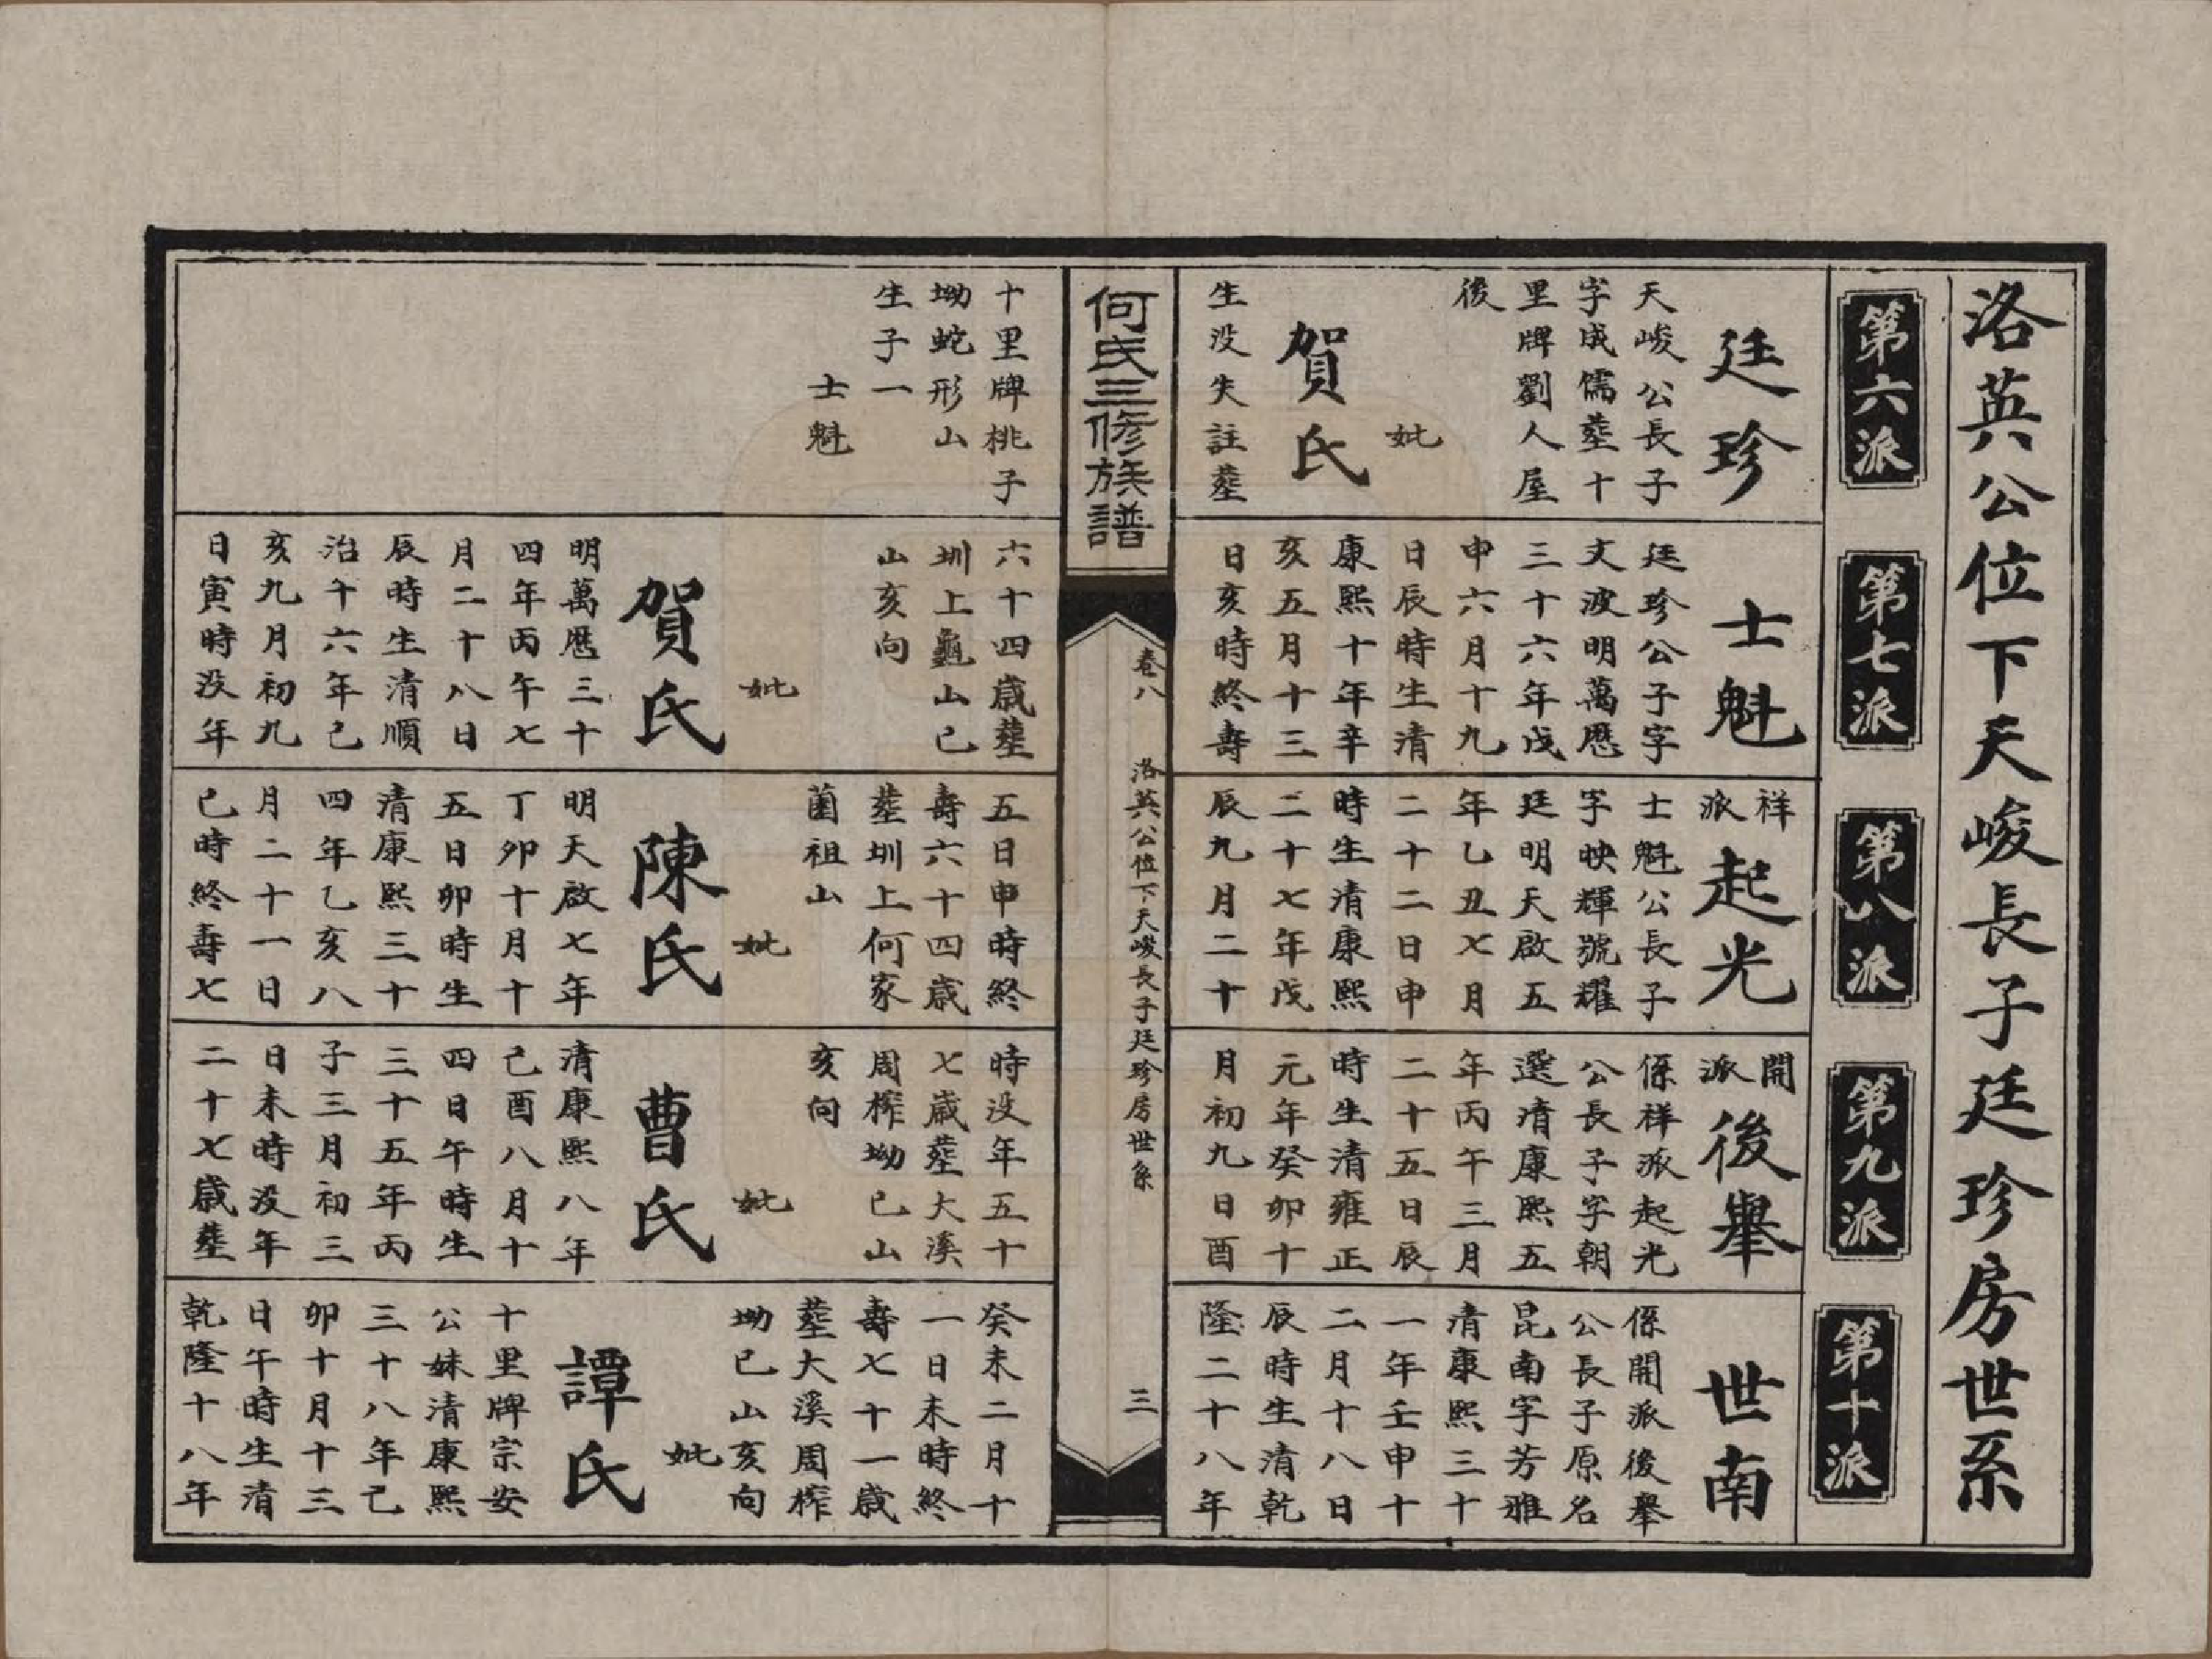 洛英公位下天峻長子廷珍房世系
第六派
第七派
第八派
第九派
第十派
廷珍
天峻公長子
字成儒葬十
里牌劉人屋
後
妣
賀氏
生没失註葬
十里牌桃子
坳蛇形山
生子一
士魁
士魁
廷珍公子字
文波明萬曆
三十六年戊
申六月十九
日辰時生清
康熙十年辛
亥五月十三
日亥時終壽
六十四歲葬
圳上龜山己
山亥向
妣
賀氏
明萬曆三十
四年丙午七
月二十八日
辰時生清順
治十六年己
亥九月初九
日寅時没年
祥派
起光
士魁公長子
字映輝號耀
廷明天啟五
年乙丑七月
二十二日申
時生清康熙
二十七年戊
辰九月二十
五日申時終
壽六十四歲
葬圳上何家
菌祖山
妣
陳氏
明天啟七年
丁卯十月十
五日卯時生
清康熙三十
四年乙亥八
月二十一日
巳時終壽七
開派
後舉
係祥派起光
公長子字朝
選清康熙五
年丙午三月
二十五日辰
時生清雍正
元年癸卯十
月初九日酉
時没年五十
七歲葬大溪
周榨坳巳山
亥向
妣
曹氏
清康熙八年
己酉八月十
四日午時生
三十五年丙
子三月初三
日未時没年
二十七歲葬
世南
係開派後舉
公長子原名
昆南字芳雅
清康熙三十
一年壬申十
二月十八日
辰時生清乾
隆二十八年
癸未二月十
一日未時終
壽七十一歲
葬大溪周榨
坳巳山亥向
妣
譚氏
十里牌宗安
公妹清康熙
三十八年己
卯十月十三
日午時生清
乾隆十八年
何氏三修族譜
卷八
洛英公位下天峻長子廷珍房世系
三